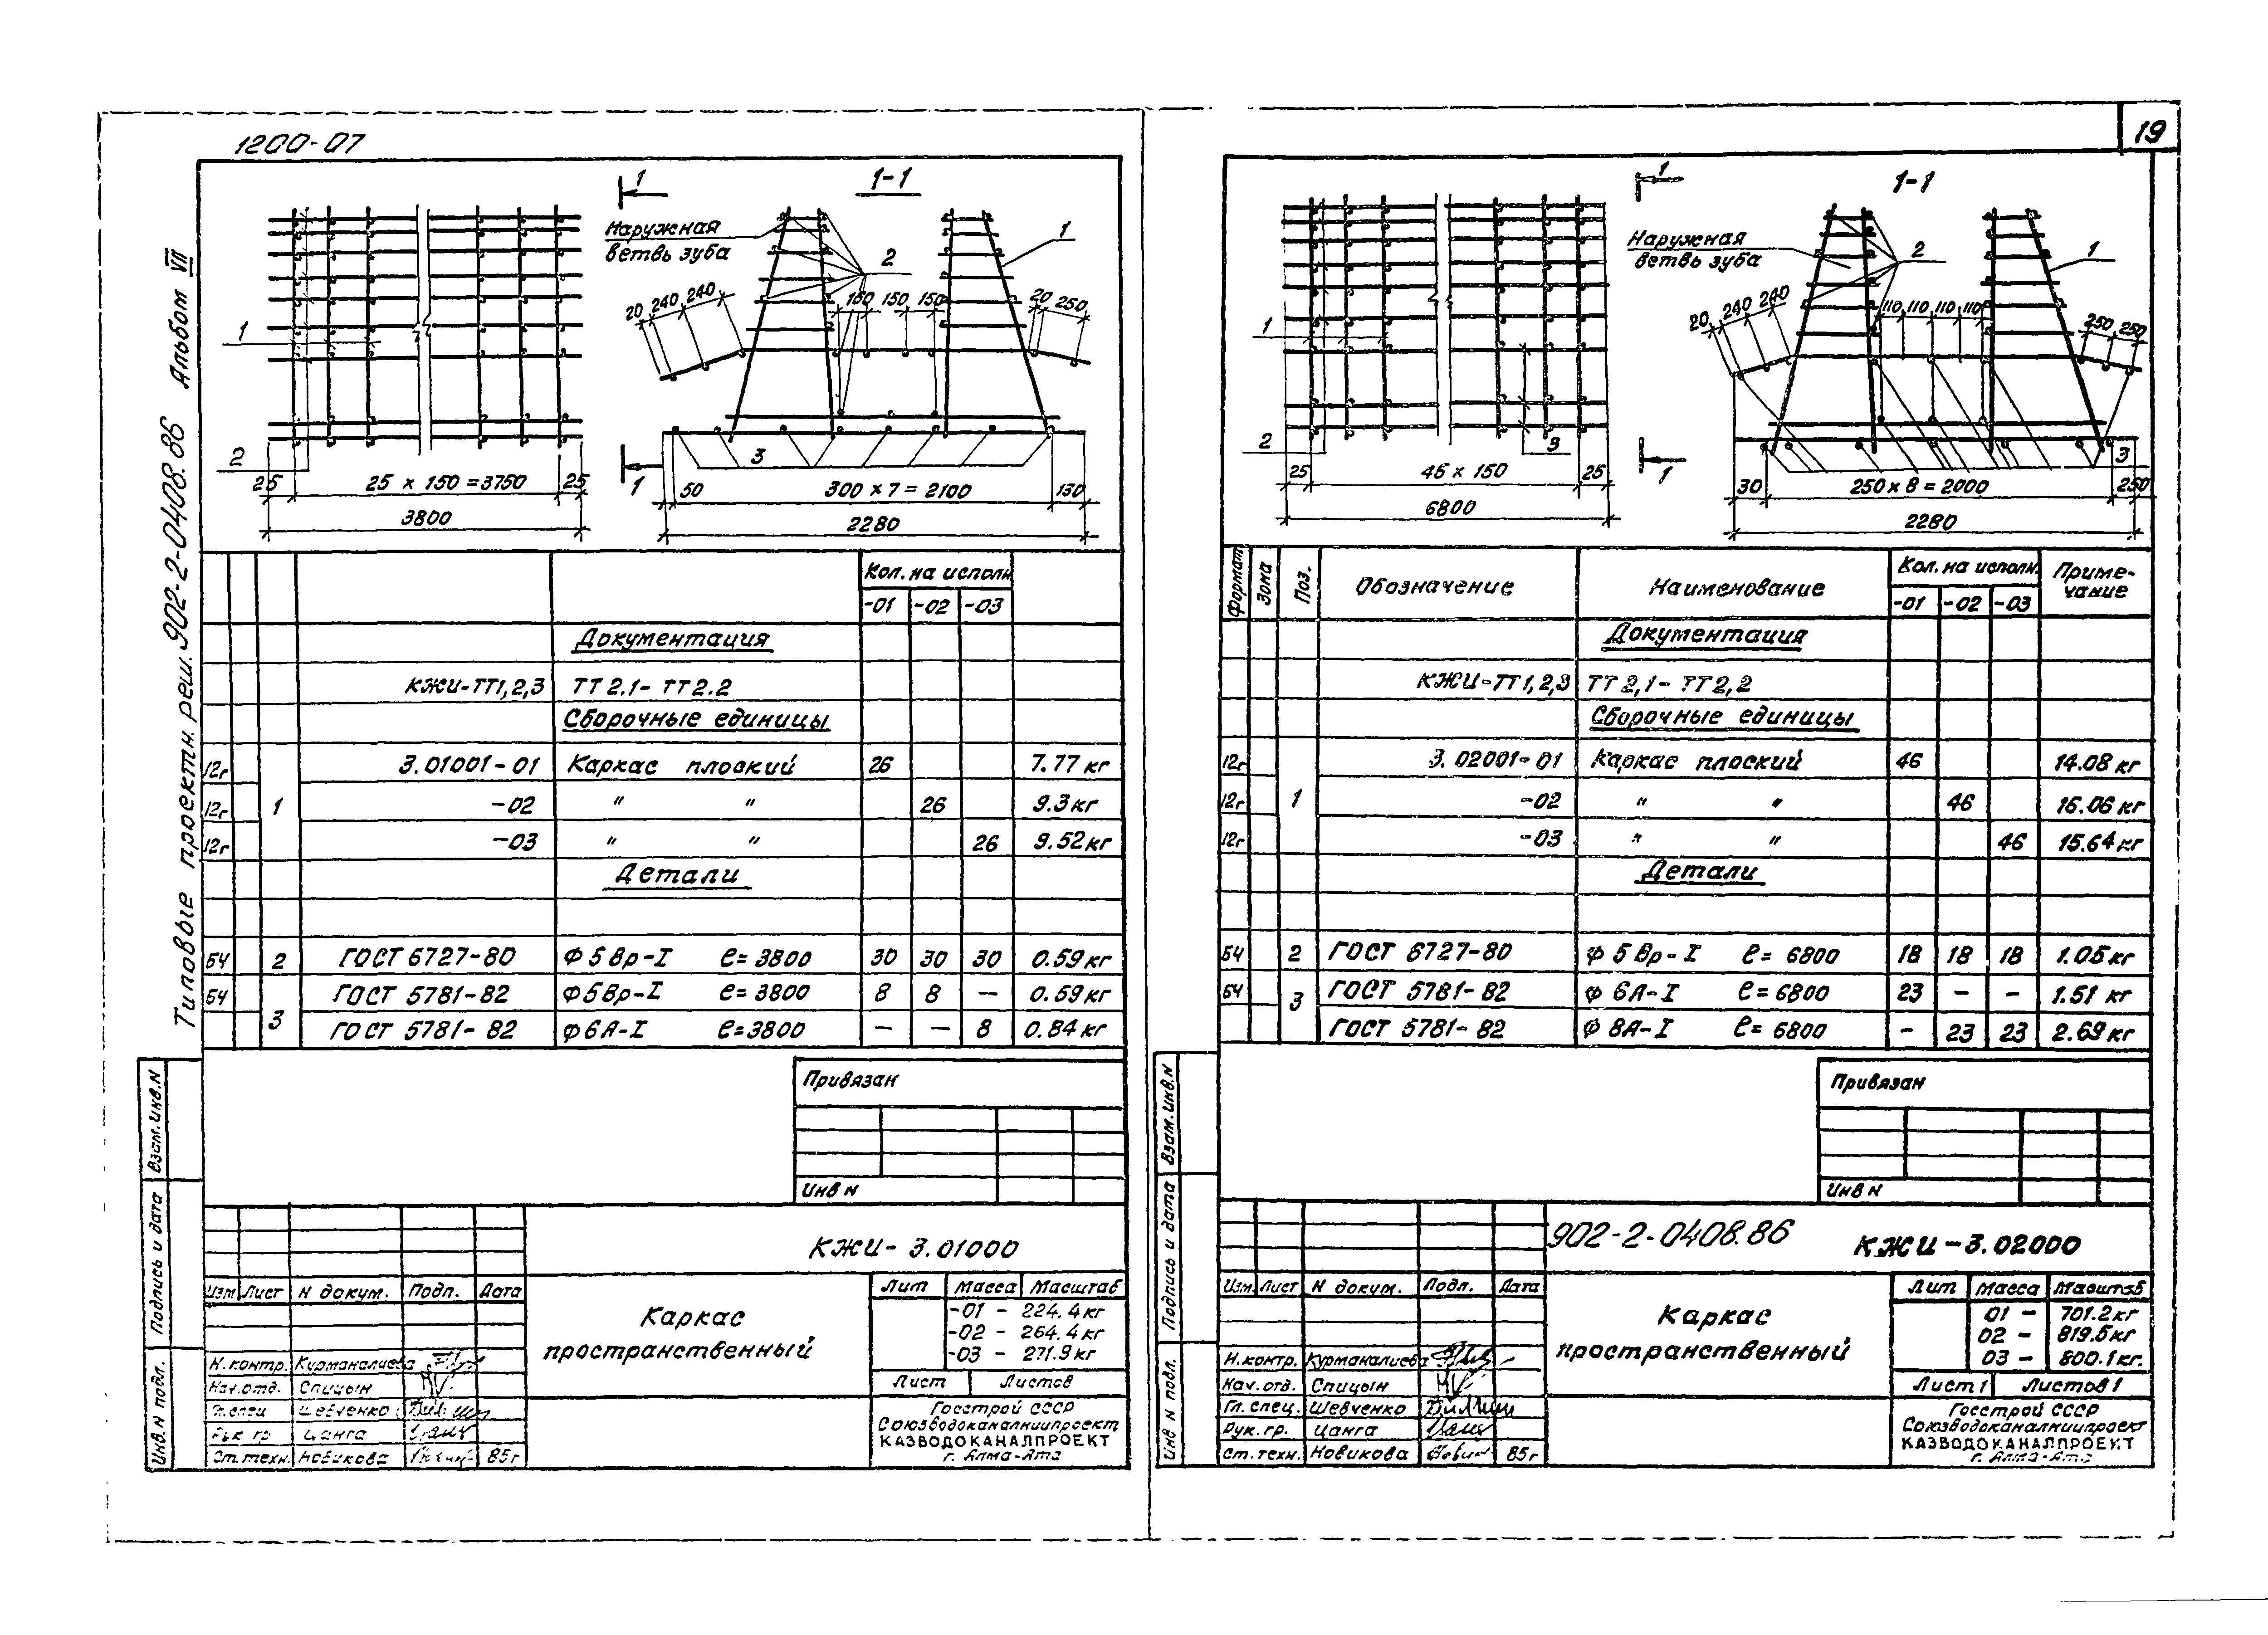 19
1200-07
Типовые проектн. реш. 902-2-0408.86 Альбом VII
1
1-1
Наружная
ветвь зуба
1
2
20 240 240
150 150 150
20 250
1
2
3
25 25 × 150 = 3750 25
3800
1
50 300 × 7 = 2100 130
2280
Кол. на исполн.
-01 -02 -03
Документация
КЖИ-ТТ1,2,3 ТТ2.1- ТТ2.2
Сборочные единицы
12г 3.01001-01 Каркас плоский 26 7.77 кг
12г 1 -02 " " 26 9.3 кг
12г -03 " " 26 9.52 кг
Детали
БЧ 2 ГОСТ 6727-80 Ф 5 Вр-I ℓ= 3800 30 30 30 0.59 кг
БЧ ГОСТ 5781-82 Ф5Вр-I ℓ=3800 8 8 — 0.59 кг
3 ГОСТ 5781-82 Ф6А-I ℓ=3800 — — 8 0.84 кг
Привязан
Инв N
Взам. Инв. N
Подпись и дата
Инв. N подл.
КЖИ- 3.01000
Изм Лист N докум. Подп. Дата
Каркас
пространственный
Лит Масса Масштаб
-01 - 224.4 кг
-02 - 264.4 кг
-03 - 271.9 кг
Лист Листов
Н.контр. Курманалиева
Нач.отд. Спицын
Гл.спец Шевченко
Рук гр Цанга
Ст.техн. Новикова 85г
Госстрой СССР
Союзводоканалниипроект
КАЗВОДОКАНАЛПРОЕКТ
г. Алма-Ата
1
1-1
Наружная
ветвь зуба
2
1
20 240 240
110 110 110 110
250 250
1
2
3
3
25 46 × 150 25
6800
1
30 250 × 8 = 2000 250
2280
Формат Зона Поз. Обозначение Наименование Кол. на исполн. Приме-
чание
-01 -02 -03
Документация
КЖИ-ТТ1,2,3 ТТ2,1- ТТ2,2
Сборочные единицы
12г 3.02001-01 Каркас плоский 46 14.08 кг
12г 1 -02 " " 46 16.06 кг
12г -03 " " 46 15.64 кг
Детали
БЧ 2 ГОСТ 6727-80 Ф 5 Вр-I ℓ= 6800 18 18 18 1.05 кг
БЧ 3 ГОСТ 5781-82 Ф 6А-I ℓ=6800 23 - - 1.51 кг
ГОСТ 5781-82 Ф 8А-I ℓ= 6800 - 23 23 2.69 кг
Привязан
Инв N
Взам. Инв. N
Подпись и дата
Инв N подл.
902-2-0408.86 КЖИ-3.02000
Изм. Лист N докум. Подп. Дата
Каркас
пространственный
Лит Масса Масштаб
01 - 701.2кг
02 - 819.5кг
03 - 800.1кг.
Лист 1 Листов 1
Н.контр. Курманалиева
Нач. отд. Спицын
Гл. спец. Шевченко
Рук. гр. Цанга
Ст. техн. Новикова 85г
Госстрой СССР
Союзводоканалниипроект
КАЗВОДОКАНАЛПРОЕКТ
г. Алма-Ата